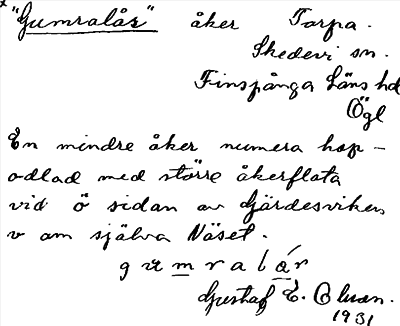 "Gumralår" åker Torpa.
Skedevi sn.
Finspånga Läns hd
Ögl
En mindre åker numera hop-
odlad med större åkerflata
vid ö sidan av Gärdesviken
v om själva Näset.
g u m r a l å r
Gustaf E. Olson.
1931